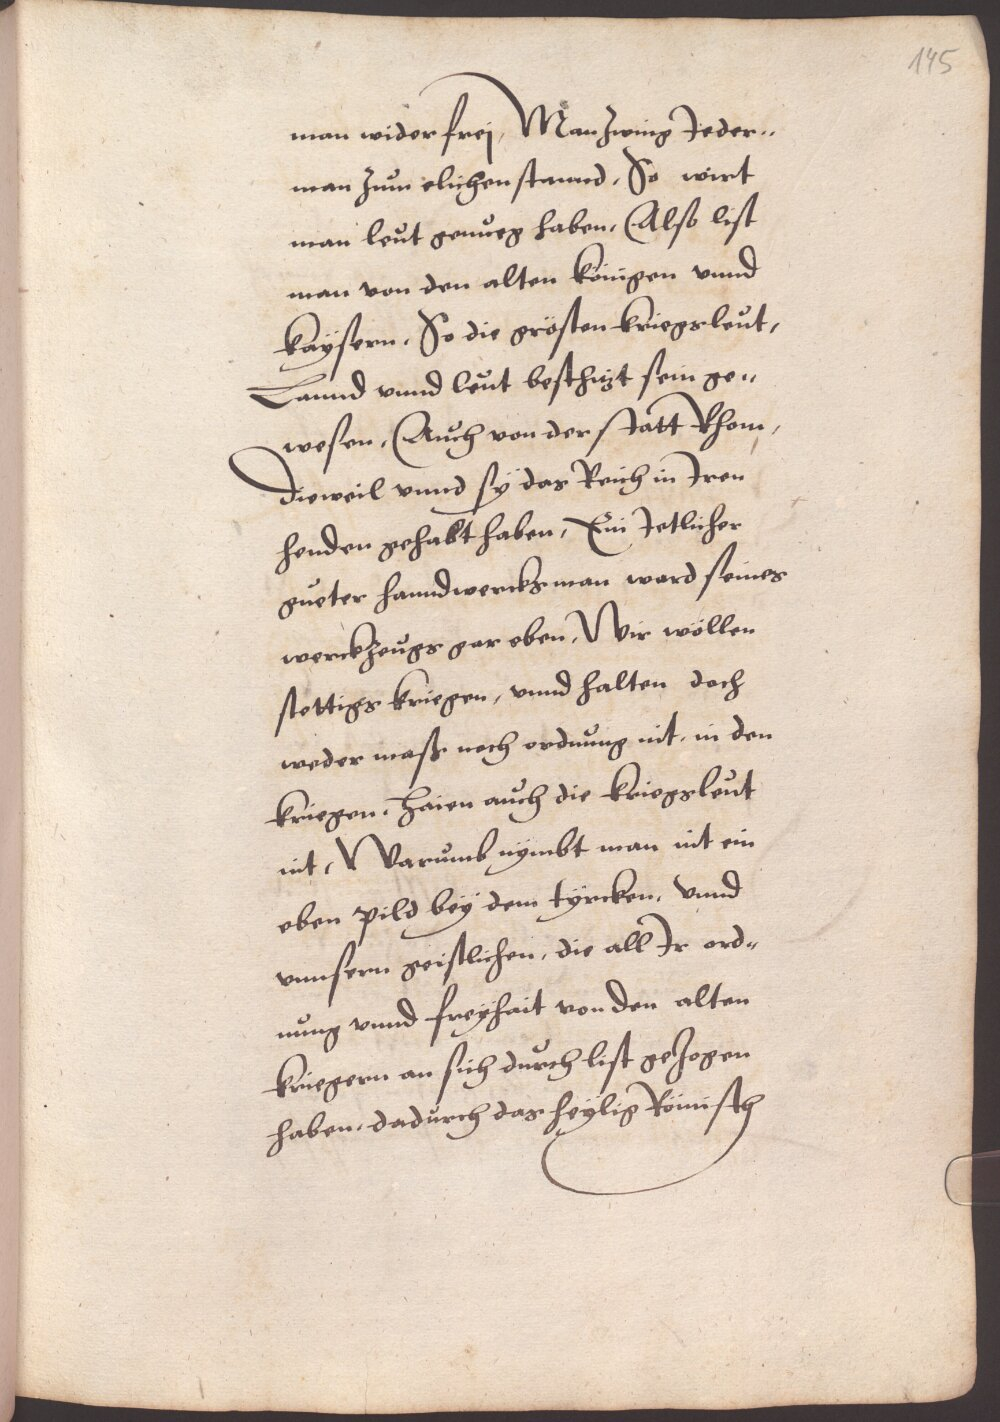 145
man wider frej, Man zwing Jeder„
man zum elichen stannd, So wirt
man leut genueg haben, Also list
man von den alten königen vnnd
kaÿsern, So die grösten kriegsleut,
Lannd vnnd leut beschüzt sein ge„
wesen, Auch von der statt Rhom,
dieweil vnnd sÿ das Reich in Iren
henden gehabt haben, Ein Jetlicher
gueter hanndwercksman ward seines
werckzeugs gar eben, Wir wöllen
stettigs kriegen, vnnd halten doch
weder mass noch ordnung nit, in den
kriegen, haien auch die kriegsleut
nit, Warumb nÿmbt man nit ein
eben pild beÿ dem tÿrcken, vnnd
vnnsern geistlichen, die all Ir ord„
nung vnnd freÿhait von den alten
kriegern an sich durch list gezogen
haben, dadurch das heÿlig Römisch